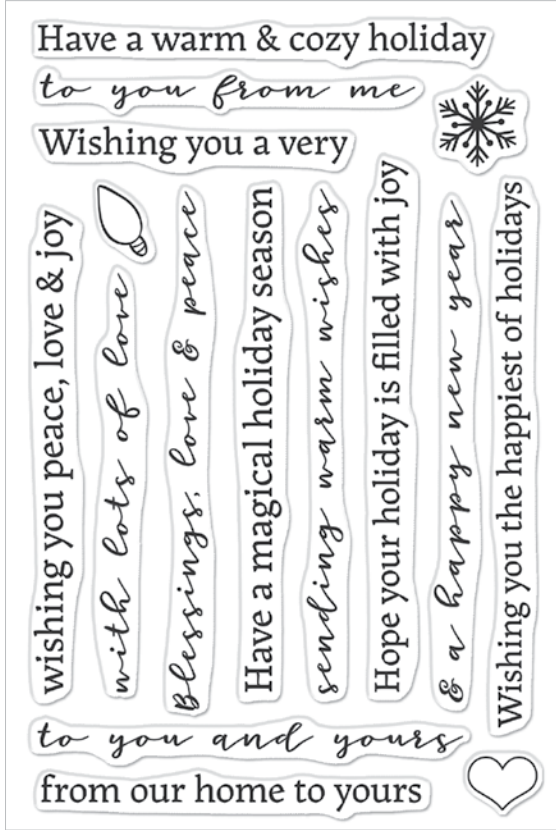 Have a warm & cozy holiday
to you from me
Wishing you a very
wishing you peace, love & joy
with lots of love
Blessings, love & peace
Have a magical holiday season
sending warm wishes
Hope your holiday is filled with joy
& a happy new year
Wishing you the happiest of holidays
to you and yours
from our home to yours